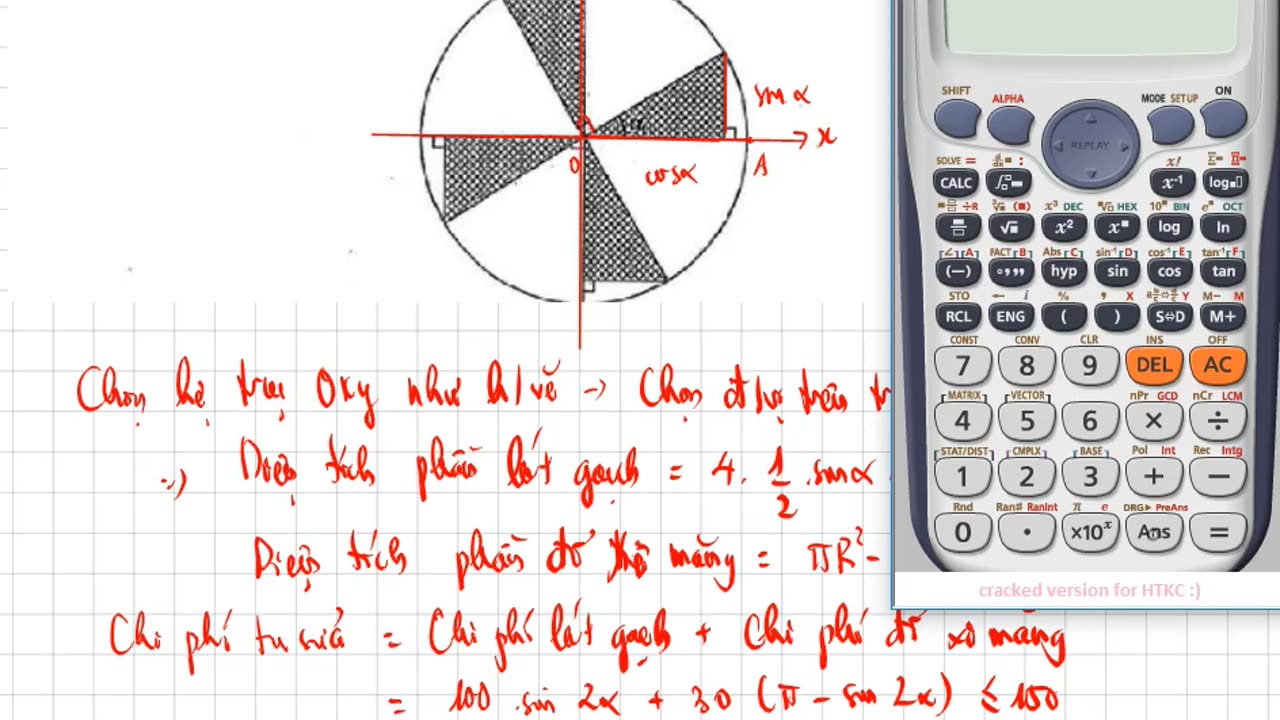 sin α
α
x
O
cosα
A
Chọn hệ trục Oxy như h/vẽ → Chọn đ/tr trên tr
=) Diện tích phần lát gạch = 4. 1/2 . sinα
Diện tích phần đổ xi măng = πR² -
Chi phí tu sửa = Chi phí lát gạch + Chi phí đổ xi măng
= 100 . sin 2α + 30 (π - sin 2α) ≤ 100
SHIFT ALPHA MODE SETUP ON
REPLAY
SOLVE = : x! Σ Π
CALC ∫ x⁻¹ log
÷R ³√ x³ DEC HEX 10■ BIN e■ OCT
√■ x² x■ log ln
∠ A FACT B Abs C sin⁻¹ D cos⁻¹ E tan⁻¹ F
(−) hyp sin cos tan
STO ← i % , X Y M− M
RCL ENG ( ) S⇔D M+
CONST CONV CLR INS OFF
7 8 9 DEL AC
MATRIX VECTOR nPr GCD nCr LCM
4 5 6 × ÷
STAT/DIST CMPLX BASE Pol Int Rec Intg
1 2 3 + −
Rnd Ran# RanInt π e DRG▶ PreAns
0 . ×10ˣ Ans =
cracked version for HTKC :)